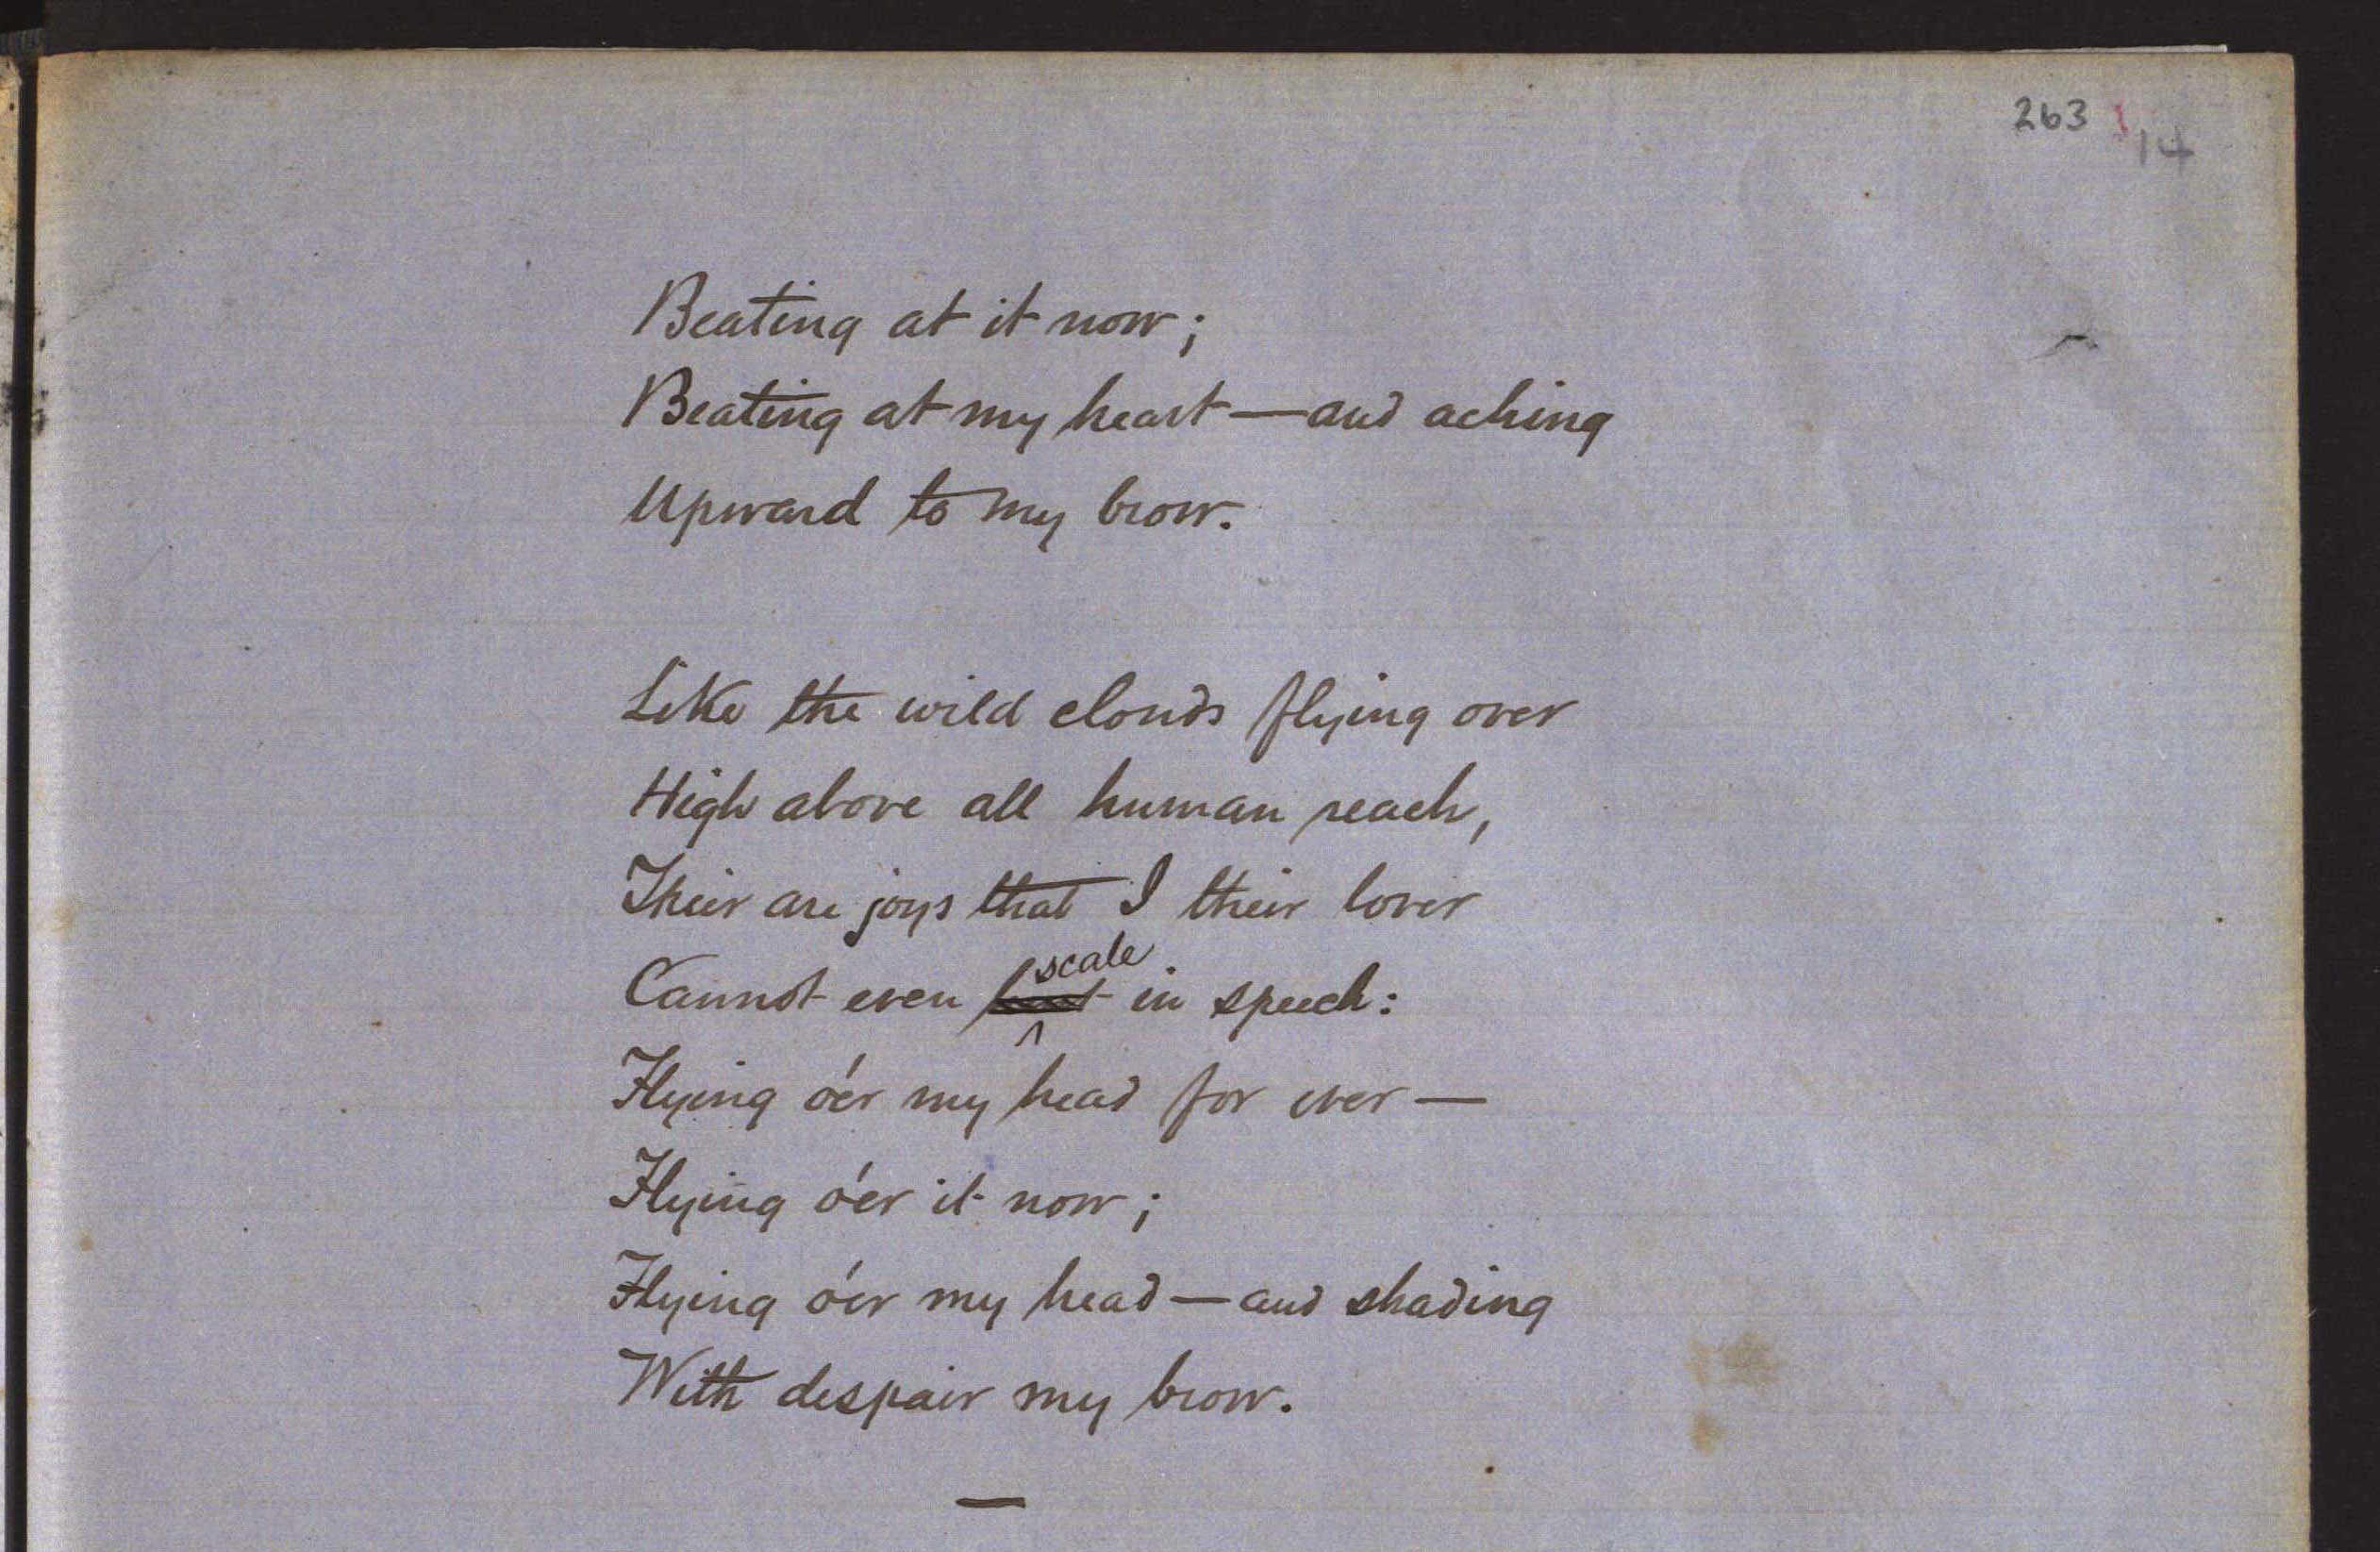 263
14
Beating at it now;
Beating at my heart—and aching
Upward to my brow.
Like the wild clouds flying over
High above all human reach,
Their are joys that I their lover
scale
Cannot even in speech:
Flying óer my head for ever—
Flying óer it now;
Flying óer my head—and shading
With despair my brow.
—